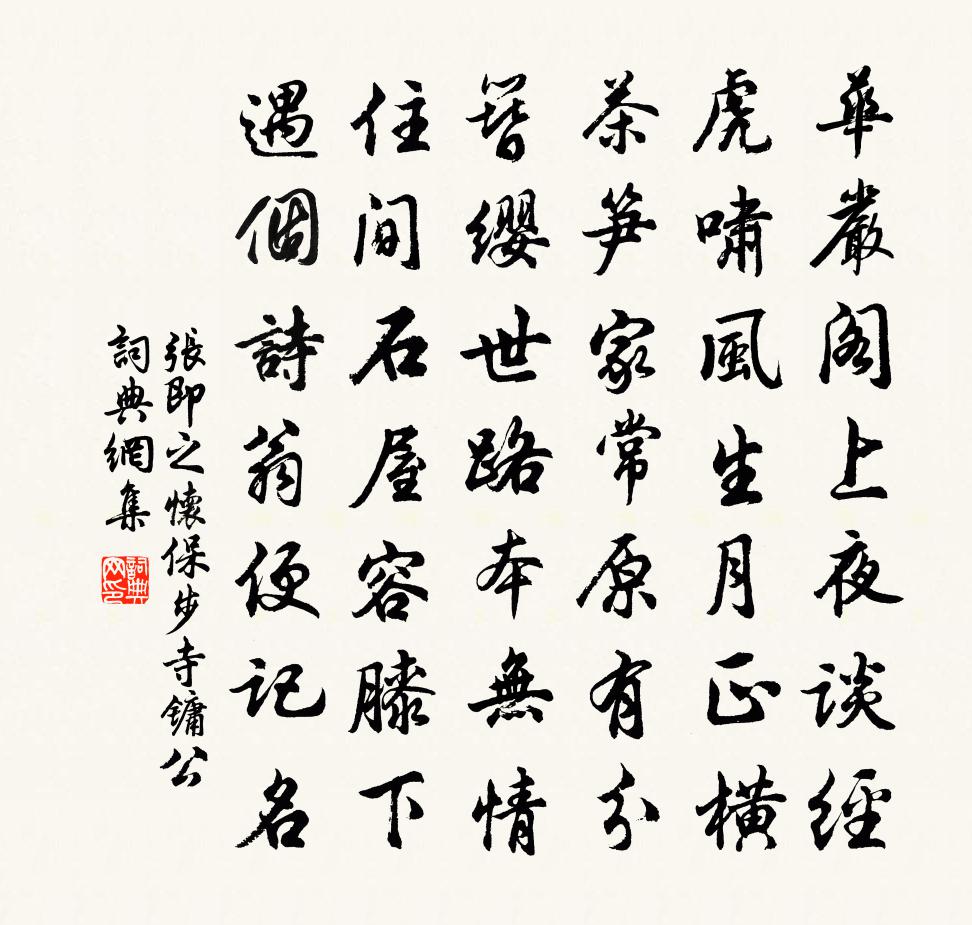 華嚴閣上夜談經
虎嘯風生月正橫
茶笋家常原有分
簪纓世路本無情
住間石屋容膝下
遇個詩翁便記名
張即之懷保步寺鏞公
詞典網集
詞典網印